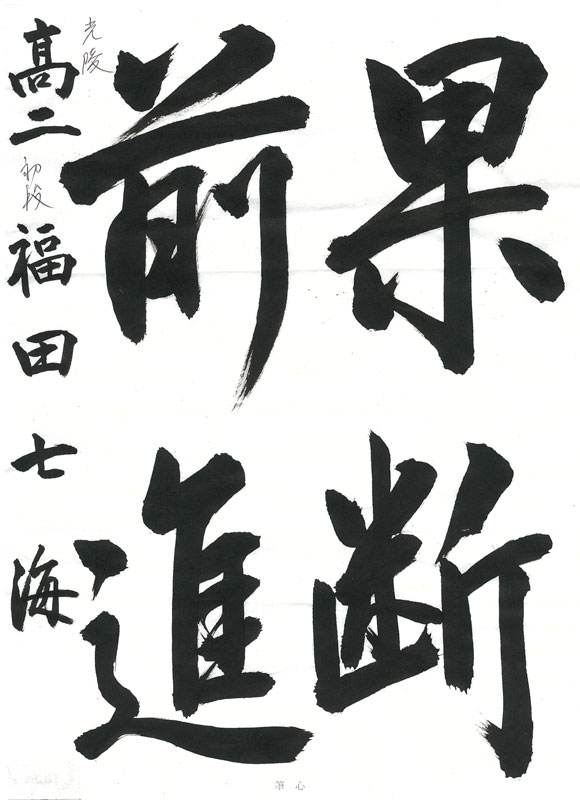 果断
前進
光陵
高二 初段 福田七海
筆心